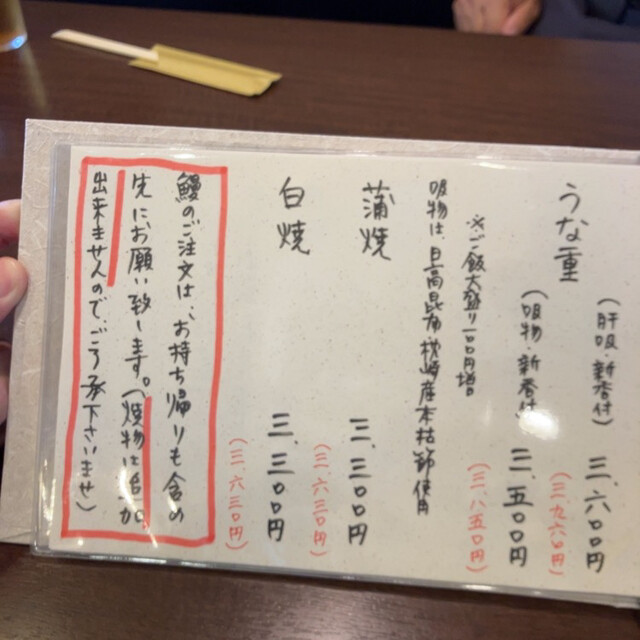 うな重
(肝吸・新香付) 三、六〇〇円
(三、九六〇円)
(吸物・新香付) 三、五〇〇円
(三、八五〇円)
※ご飯大盛り一〇〇円増
吸物は、日高昆布、枕崎産本枯節使用
蒲焼 三、三〇〇円
(三、六三〇円)
白焼 三、三〇〇円
(三、六三〇円)
鰻のご注文は、お持ち帰りも含め
先にお願い致します。(焼物は追加
出来ませんので、ご了承下さいませ)